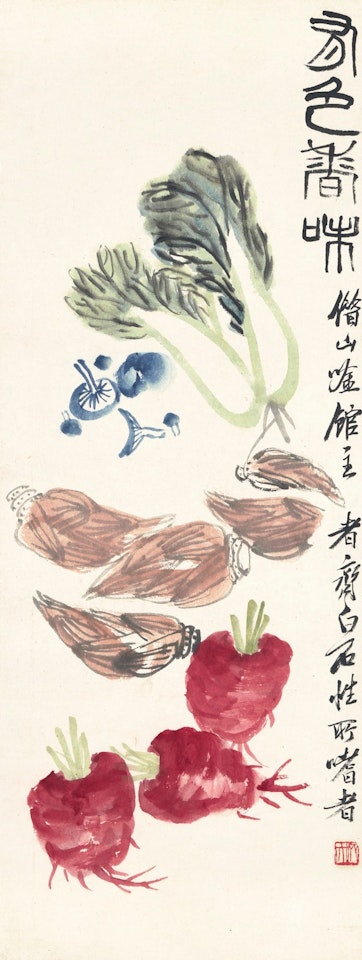 有色香味
借山唫館主者齊白石性所嗜者